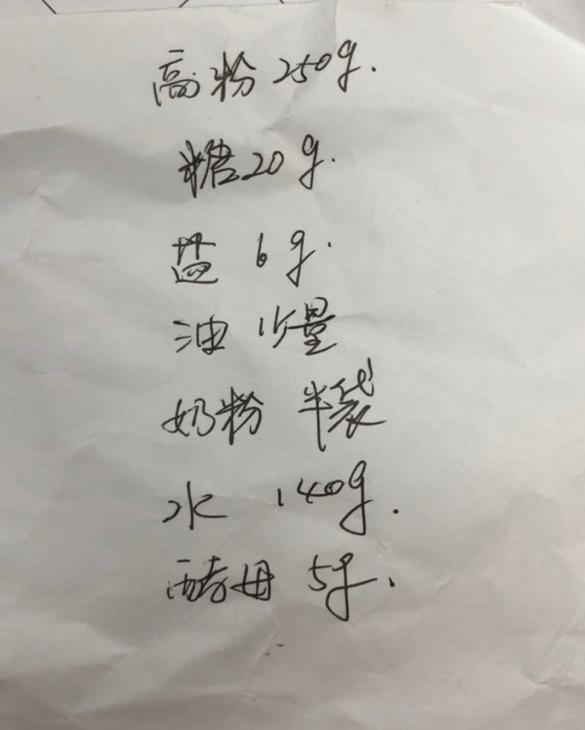 高粉 250g.
糖 20g.
盐 6g.
油 少量
奶粉 半袋
水 140g.
酵母 5g.